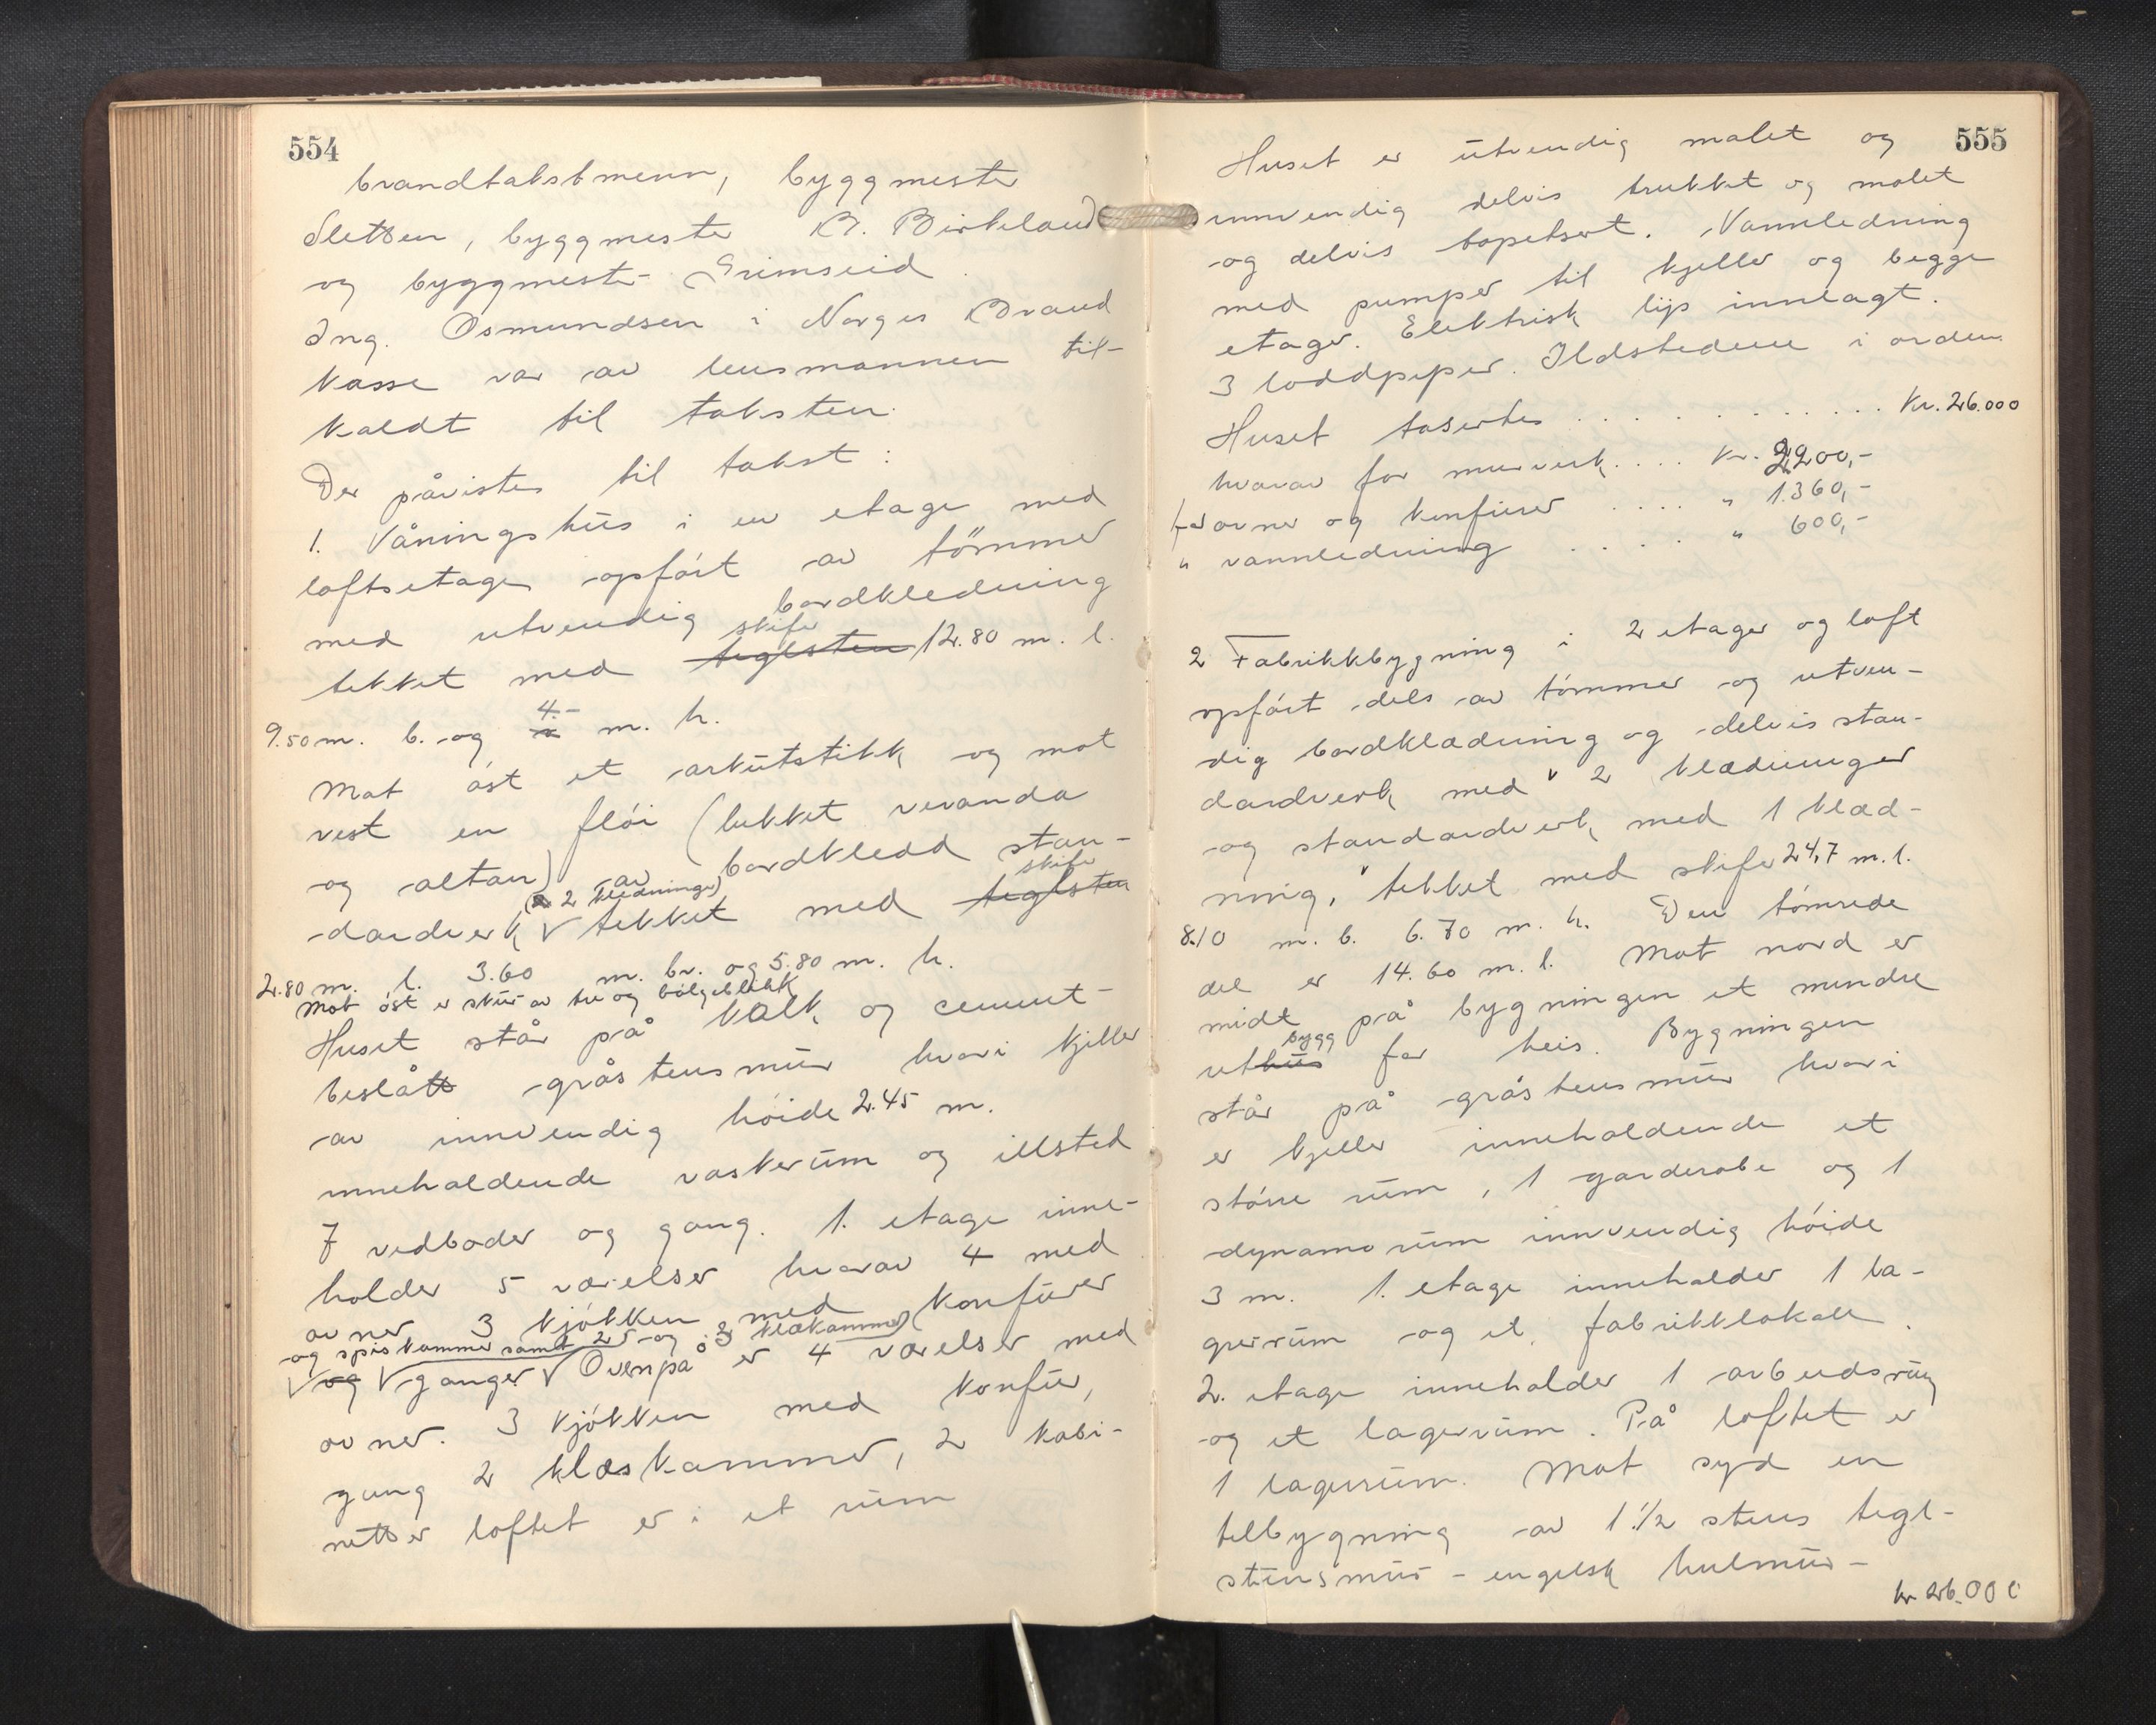 554
brandtakstmenn, byggmester
Sletten, byggmester B. Birkeland
og byggmester Grimseid.
Ing. Osmundsen i Norges Brand
kasse var av lensmannen til-
kaldt til taksten.
Der påvistes til takst:
1. Våningshus i en etage med
loftsetage opført av tømmer
med utvendig bordkledning
skifer
tekket med teglsten 12.80 m. l.
4.-
9.50 m. b. og m. h.
Mot øst et arkutstikk og mot
vest en fløi (lukket veranda
og altan) av bordkledd stan-
(2 kledninger) skifer
dardverk tekket med teglsten
2.80 m. l. 3.60 m. br. og 5.80 m. h.
Mot øst er skur av tre og bølgeblikk
Huset står på kalk og cement-
beslått gråstensmur hvori kjeller
av innvendig høide 2.45 m.
inneholdende vaskerum og illsted
7 vedboder og gang. 1. etage inne-
holder 5 værelser hvorav 4 med
ovner 3 kjøkken med komfurer
og spiskammer samt 2 og 3 klækammer
og ganger. Ovenpå er 4 værelser med
ovner. 3 kjøkken med komfur,
gang 2 klæskammer, 2 kabi-
netter loftet er i et rum
555
Huset er utvendig malet og
innvendig delvis trukket og malet
og delvis tapetsert. Vannledning
med pumper til kjeller og begge
etager. Elektrisk lys innlagt.
3 loddpiper. Ildstedene i orden.
Huset taxertes . . . . . . . . . . . kr. 26.000
hvorav for murverk . . . . kr. 2,200,-
for ovner og komfurer . . . . " 1.360,-
" vannledning . . . . " 600,-
2 Fabrikkbygning i 2 etager og loft
opført dels av tømmer og utven-
dig bordklædning og delvis stan-
dardverk med 2 klædninger
og standardverk med 1 klæd-
ning, tekket med skifer 24,7 m. l.
8.10 m. b. 6.70 m. h. Den tømrede
del er 14.60 m. l. Mot nord er
midt på bygningen et mindre
bygg
uthus for heis. Bygningen
står på gråstensmur hvori
er kjeller inneholdende et
større rum, 1 garderobe og 1
dynamorum innvendig høide
3 m. 1. etage inneholder 1 la-
gerrum og et fabrikklokale.
2. etage inneholder 1 arbeidsrum
og et lagerrum. På loftet er
1 lagerrum. Mot syd en
tilbygning av 1 1/2 stens tegl-
stensmur - engelsk hulmur -
kr. 26.000